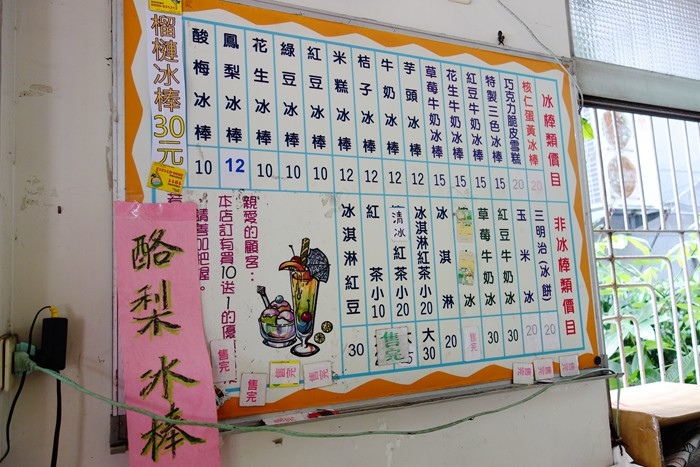 冰棒類價目
核仁蛋黃冰棒 20
巧克力脆皮雪糕 20
特製三色冰棒 15
紅豆牛奶冰棒 15
花生牛奶冰棒 15
草莓牛奶冰棒 15
芋頭冰棒 12
牛奶冰棒 12
桔子冰棒 12
米糕冰棒 12
紅豆冰棒 10
綠豆冰棒 10
花生冰棒 10
鳳梨冰棒 12
酸梅冰棒 10
榴槤冰棒30元
非冰棒類價目
三明治(冰餅) 20
玉米冰 20
紅豆牛奶冰 30
草莓牛奶冰 30
冰淇淋 20
冰淇淋紅茶小20
大30
清冰紅茶小20
紅茶小10
售完
冰淇淋紅豆 30
親愛的顧客：
本店訂有買10送1的優
請善加把握。
售完
售完
售完
售完
售完
售完
售完
酪梨冰棒